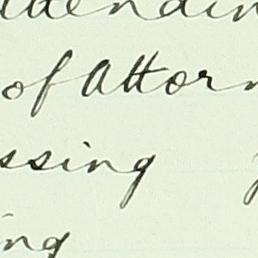 ttendin
of Attor
ssing
ing